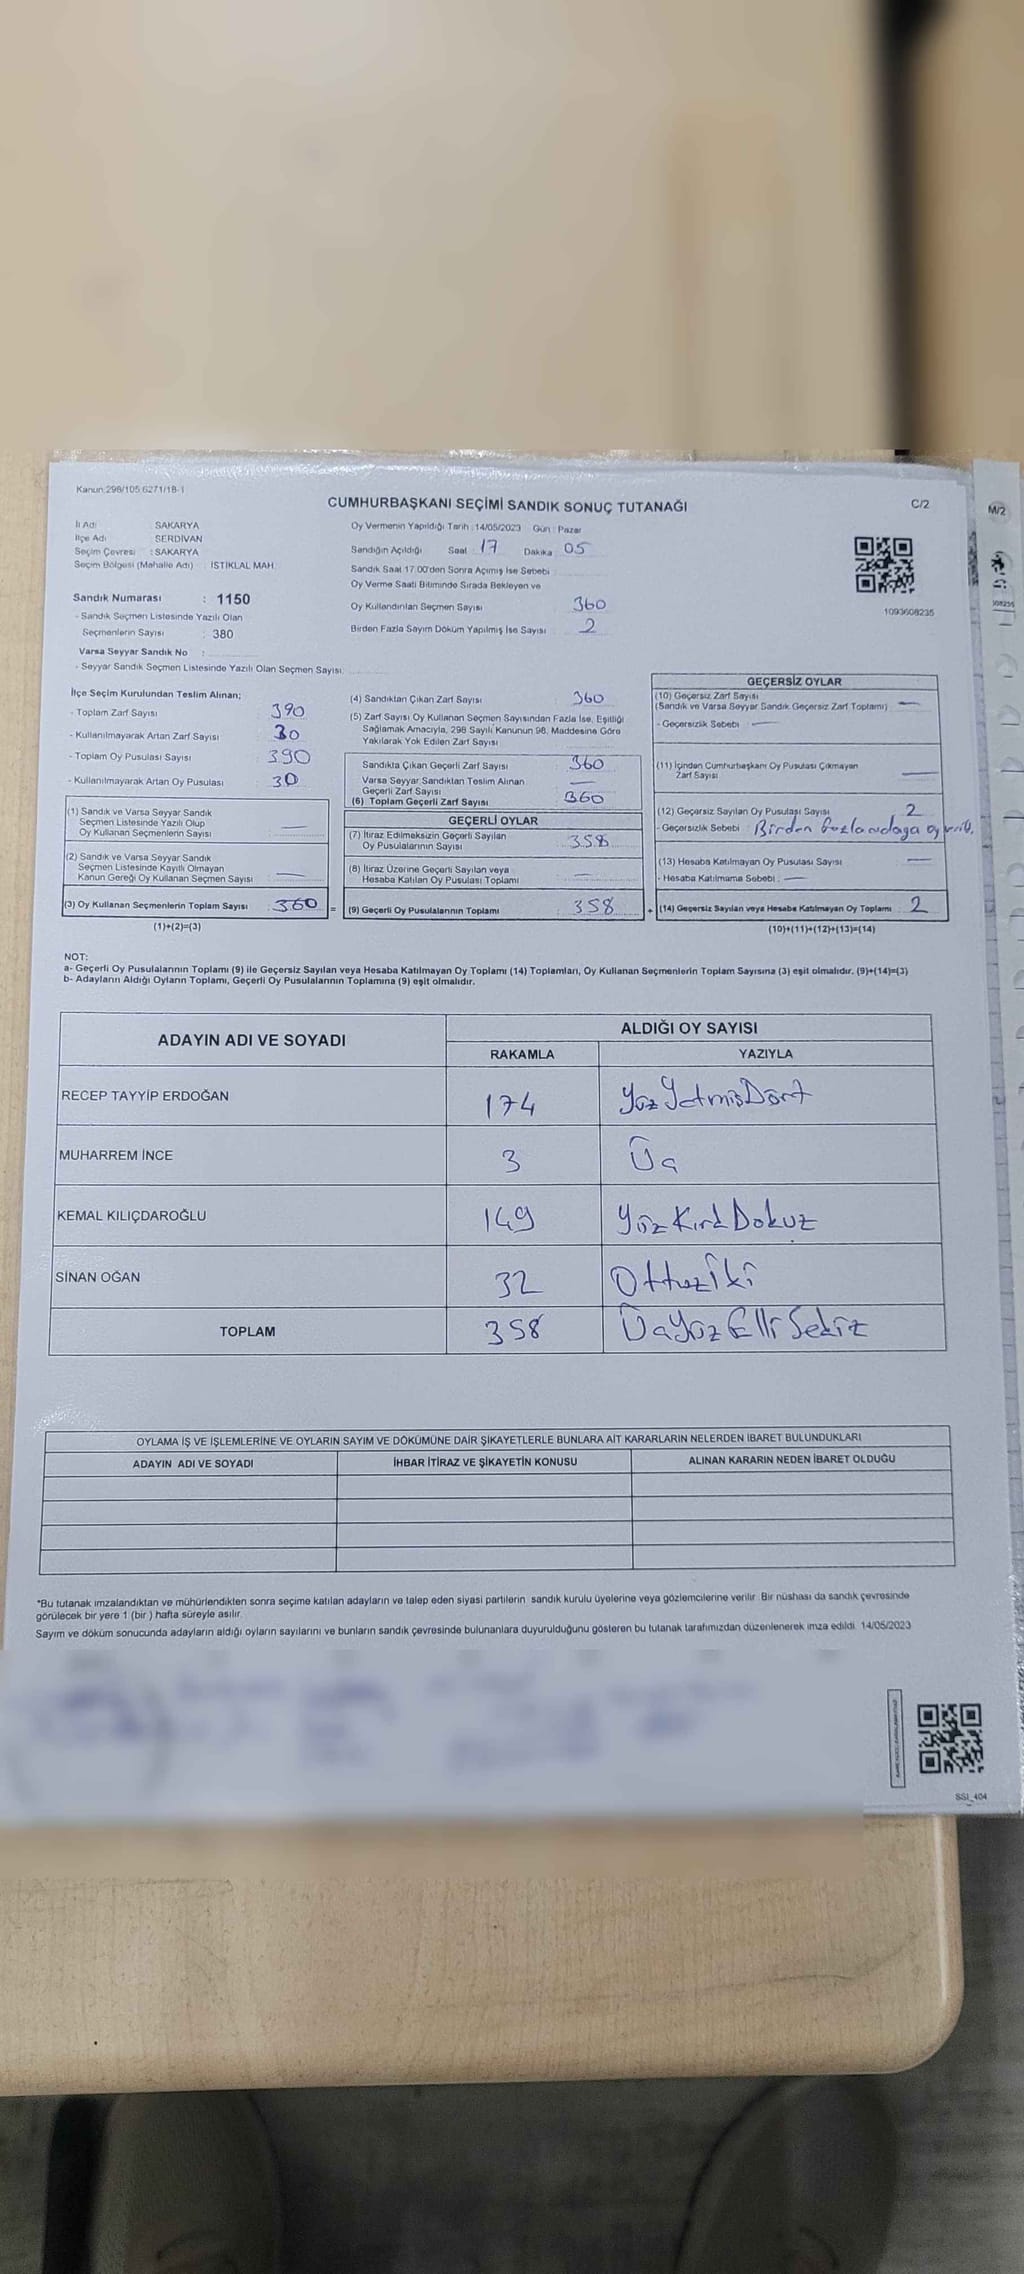 Kanun:298/105,6271/18-1
CUMHURBAŞKANI SEÇİMİ SANDIK SONUÇ TUTANAĞI
C/2
M/2
İl Adı SAKARYA
İlçe Adı SERDİVAN
Seçim Çevresi : SAKARYA
Seçim Bölgesi (Mahalle Adı) : İSTİKLAL MAH.
Sandık Numarası : 1150
- Sandık Seçmen Listesinde Yazılı Olan
Seçmenlerin Sayısı : 380
Varsa Seyyar Sandık No :
- Seyyar Sandık Seçmen Listesinde Yazılı Olan Seçmen Sayısı:
Oy Vermenin Yapıldığı Tarih :14/05/2023 Gün : Pazar
Sandığın Açıldığı Saat 17 Dakika 05
Sandık Saat 17.00'den Sonra Açımış İse Sebebi :
Oy Verme Saati Bitiminde Sırada Bekleyen ve
Oy Kullandırılan Seçmen Sayısı 360
Birden Fazla Sayım Döküm Yapılmış İse Sayısı 2
1093608235
İlçe Seçim Kurulundan Teslim Alınan;
- Toplam Zarf Sayısı 390
- Kullanılmayarak Artan Zarf Sayısı 30
- Toplam Oy Pusulası Sayısı 390
- Kullanılmayarak Artan Oy Pusulası 30
(1) Sandık ve Varsa Seyyar Sandık
Seçmen Listesinde Yazılı Olup
Oy Kullanan Seçmenlerin Sayısı —
(2) Sandık ve Varsa Seyyar Sandık
Seçmen Listesinde Kayıtlı Olmayan
Kanun Gereği Oy Kullanan Seçmen Sayısı —
(3) Oy Kullanan Seçmenlerin Toplam Sayısı 360 =
(1)+(2)=(3)
(4) Sandıktan Çıkan Zarf Sayısı 360
(5) Zarf Sayısı Oy Kullanan Seçmen Sayısından Fazla İse, Eşitliği
Sağlamak Amacıyla, 298 Sayılı Kanunun 98. Maddesine Göre
Yakılarak Yok Edilen Zarf Sayısı
Sandıkta Çıkan Geçerli Zarf Sayısı 360
Varsa Seyyar Sandıktan Teslim Alınan
Geçerli Zarf Sayısı —
(6) Toplam Geçerli Zarf Sayısı 360
GEÇERLİ OYLAR
(7) İtiraz Edilmeksizin Geçerli Sayılan
Oy Pusulalarının Sayısı 358
(8) İtiraz Üzerine Geçerli Sayılan veya
Hesaba Katılan Oy Pusulası Toplamı —
(9) Geçerli Oy Pusulalarının Toplamı 358 +
GEÇERSİZ OYLAR
(10) Geçersiz Zarf Sayısı
(Sandık ve Varsa Seyyar Sandık Geçersiz Zarf Toplamı) —
- Geçersizlik Sebebi : —
(11) İçinden Cumhurbaşkanı Oy Pusulası Çıkmayan
Zarf Sayısı —
(12) Geçersiz Sayılan Oy Pusulası Sayısı 2
- Geçersizlik Sebebi : Birden fazla adaya oy
(13) Hesaba Katılmayan Oy Pusulası Sayısı —
- Hesaba Katılmama Sebebi : —
(14) Geçersiz Sayılan veya Hesaba Katılmayan Oy Toplamı 2
(10)+(11)+(12)+(13)=(14)
NOT:
a- Geçerli Oy Pusulalarının Toplamı (9) ile Geçersiz Sayılan veya Hesaba Katılmayan Oy Toplamı (14) Toplamları, Oy Kullanan Seçmenlerin Toplam Sayısına (3) eşit olmalıdır. (9)+(14)=(3)
b- Adayların Aldığı Oyların Toplamı, Geçerli Oy Pusulalarının Toplamına (9) eşit olmalıdır.
ADAYIN ADI VE SOYADI ALDIĞI OY SAYISI
RAKAMLA YAZIYLA
RECEP TAYYİP ERDOĞAN 174 YüzYetmişDört
MUHARREM İNCE 3 Üç
KEMAL KILIÇDAROĞLU 149 YüzKırkDokuz
SİNAN OĞAN 32 Otuziki
TOPLAM 358 ÜçYüzElliSekiz
OYLAMA İŞ VE İŞLEMLERİNE VE OYLARIN SAYIM VE DÖKÜMÜNE DAİR ŞİKAYETLERLE BUNLARA AİT KARARLARIN NELERDEN İBARET BULUNDUKLARI
ADAYIN ADI VE SOYADI İHBAR İTİRAZ VE ŞİKAYETİN KONUSU ALINAN KARARIN NEDEN İBARET OLDUĞU
*Bu tutanak imzalandıktan ve mühürlendikten sonra seçime katılan adayların ve talep eden siyasi partilerin sandık kurulu üyelerine veya gözlemcilerine verilir. Bir nüshası da sandık çevresinde
görülecek bir yere 1 (bir ) hafta süreyle asılır.
Sayım ve döküm sonucunda adayların aldığı oyların sayılarını ve bunların sandık çevresinde bulunanlara duyurulduğunu gösteren bu tutanak tarafımızdan düzenlenerek imza edildi. 14/05/2023
SSI_404